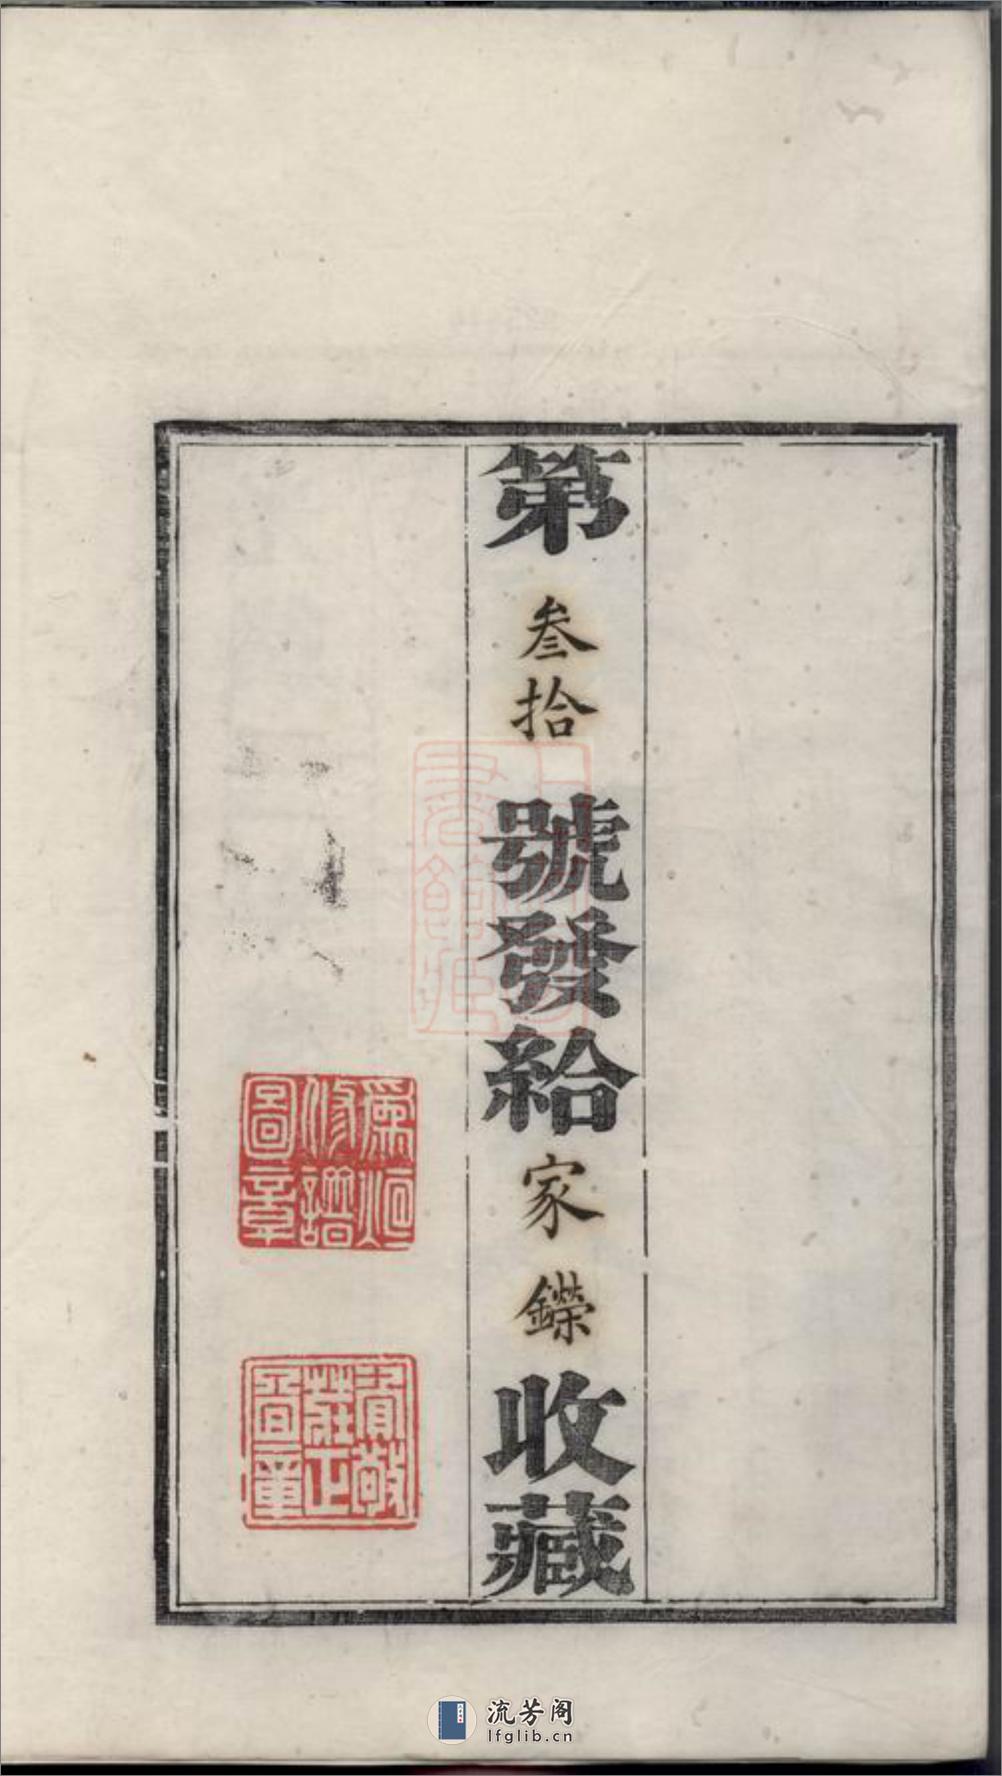 第叁拾號發給家鑅收藏
圖章
圖章
流芳阁
lfglib.cn